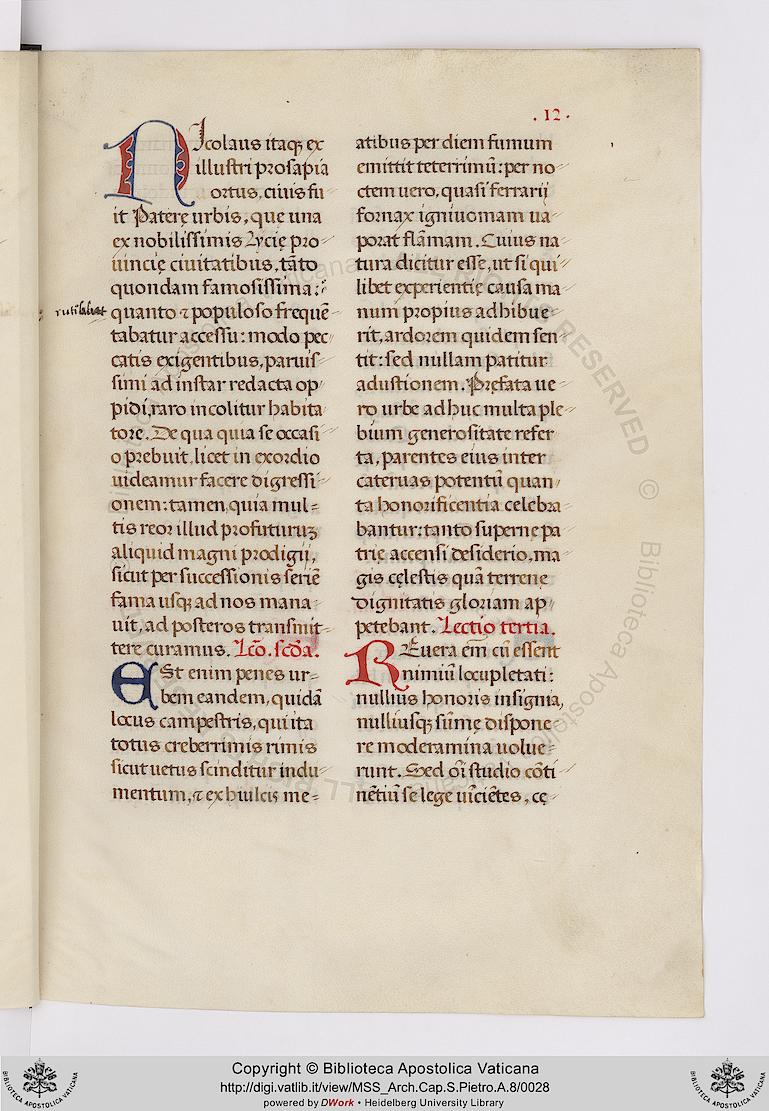 .12.
Nicolaus itaq; ex
illustri prosapia
ortus, ciuis fu
it Paterę urbis, que una
ex nobilissimis Lycię pro
uincię ciuitatibus, tāto
quondam famosissima:
rutilabat
quanto ⁊ populoso frequē
tabatur accessu: modo pec
catis exigentibus, paruis
simi ad instar redacta op
pidi, raro incolitur habita
tore. De qua quia se occasi
o prebuit, licet in exordio
uideamur facere digressi
onem: tamen, quia mul=
tis reor illud profuturuꝫ
aliquid magni prodigij,
sicut per successionis seriē
fama usq; ad nos mana
uit, ad posteros transmit
tere curamus. Lc̄o. sc̄da.
Est enim penes ur=
bem eandem, quidā
locus campestris, qui ita
totus creberrimis rimis
sicut uetus scinditur indu
mentum, ⁊ ex hiulcis me=
atibus per diem fumum
emittit teterrimū: per no
ctem uero, quasi ferrarij
fornax igniuomam ua
porat flāmam. Cuius na
tura dicitur esse, ut si qui
libet experientię causa ma
num propius adhibue
rit, ardorem quidem sen
tit: sed nullam patitur
adustionem. Pręfata ue
ro urbe adhuc multa ple
bium generositate refer
ta, parentes eius inter
cateruas potentū quan
ta honorificentia celebra
bantur: tanto supernę pa
trię accensi desiderio, ma
gis cęlestis quā terrene
dignitatis gloriam ap
petebant. Lectio tertia.
REuera em̄ cū essent
nimiū locupletati:
nullius honoris insignia,
nulliusq; sūmę dispone
re moderamina uolue=
runt. Sed oī studio cōti
nētiū se lege uīciētes, cę
Copyright © Biblioteca Apostolica Vaticana
http://digi.vatlib.it/view/MSS_Arch.Cap.S.Pietro.A.8/0028
powered by DWork • Heidelberg University Library